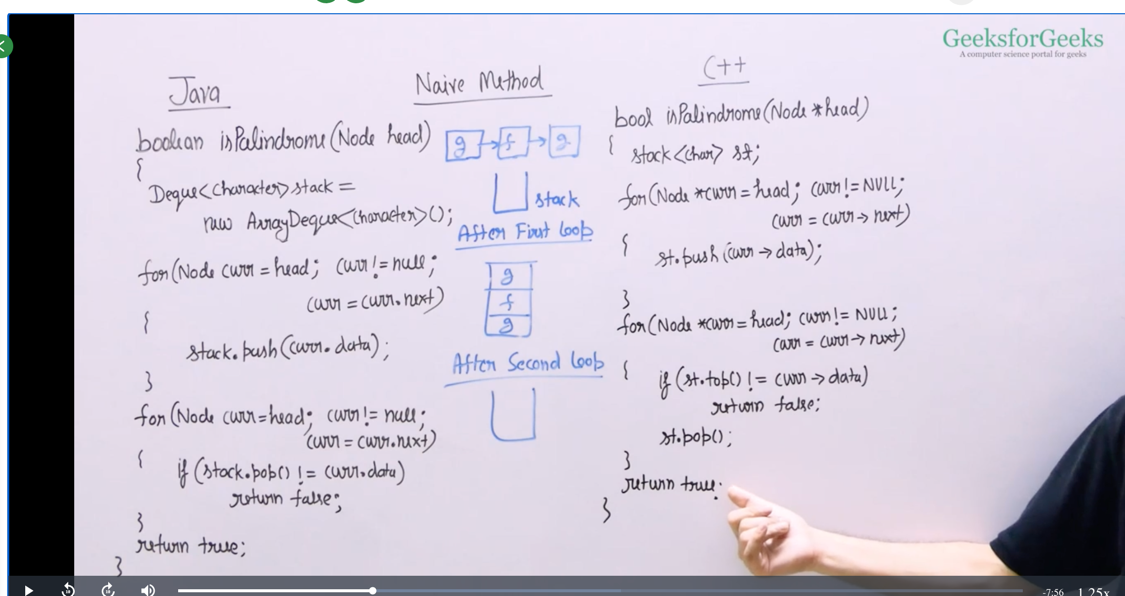 GeeksforGeeks
A computer science portal for geeks
Java
Naive Method
C++
boolean isPalindrome(Node head)
{
Deque<Character> stack =
new ArrayDeque<Character>();
for(Node curr = head; curr != null;
curr = curr.next)
{
stack.push(curr.data);
}
for(Node curr=head; curr != null;
curr = curr.next)
{
if (stack.pop() != curr.data)
return false;
}
return true;
}
g f g
stack
After First loop
g
f
g
After Second loop
bool isPalindrome(Node *head)
{
stack<char> st;
for(Node *curr = head; curr != NULL;
curr = curr → next)
{
st.push(curr → data);
}
for(Node *curr = head; curr != NULL;
curr = curr → next)
{
if (st.top() != curr → data)
return false;
st.pop();
}
return true;
}
-7:56
1.25x